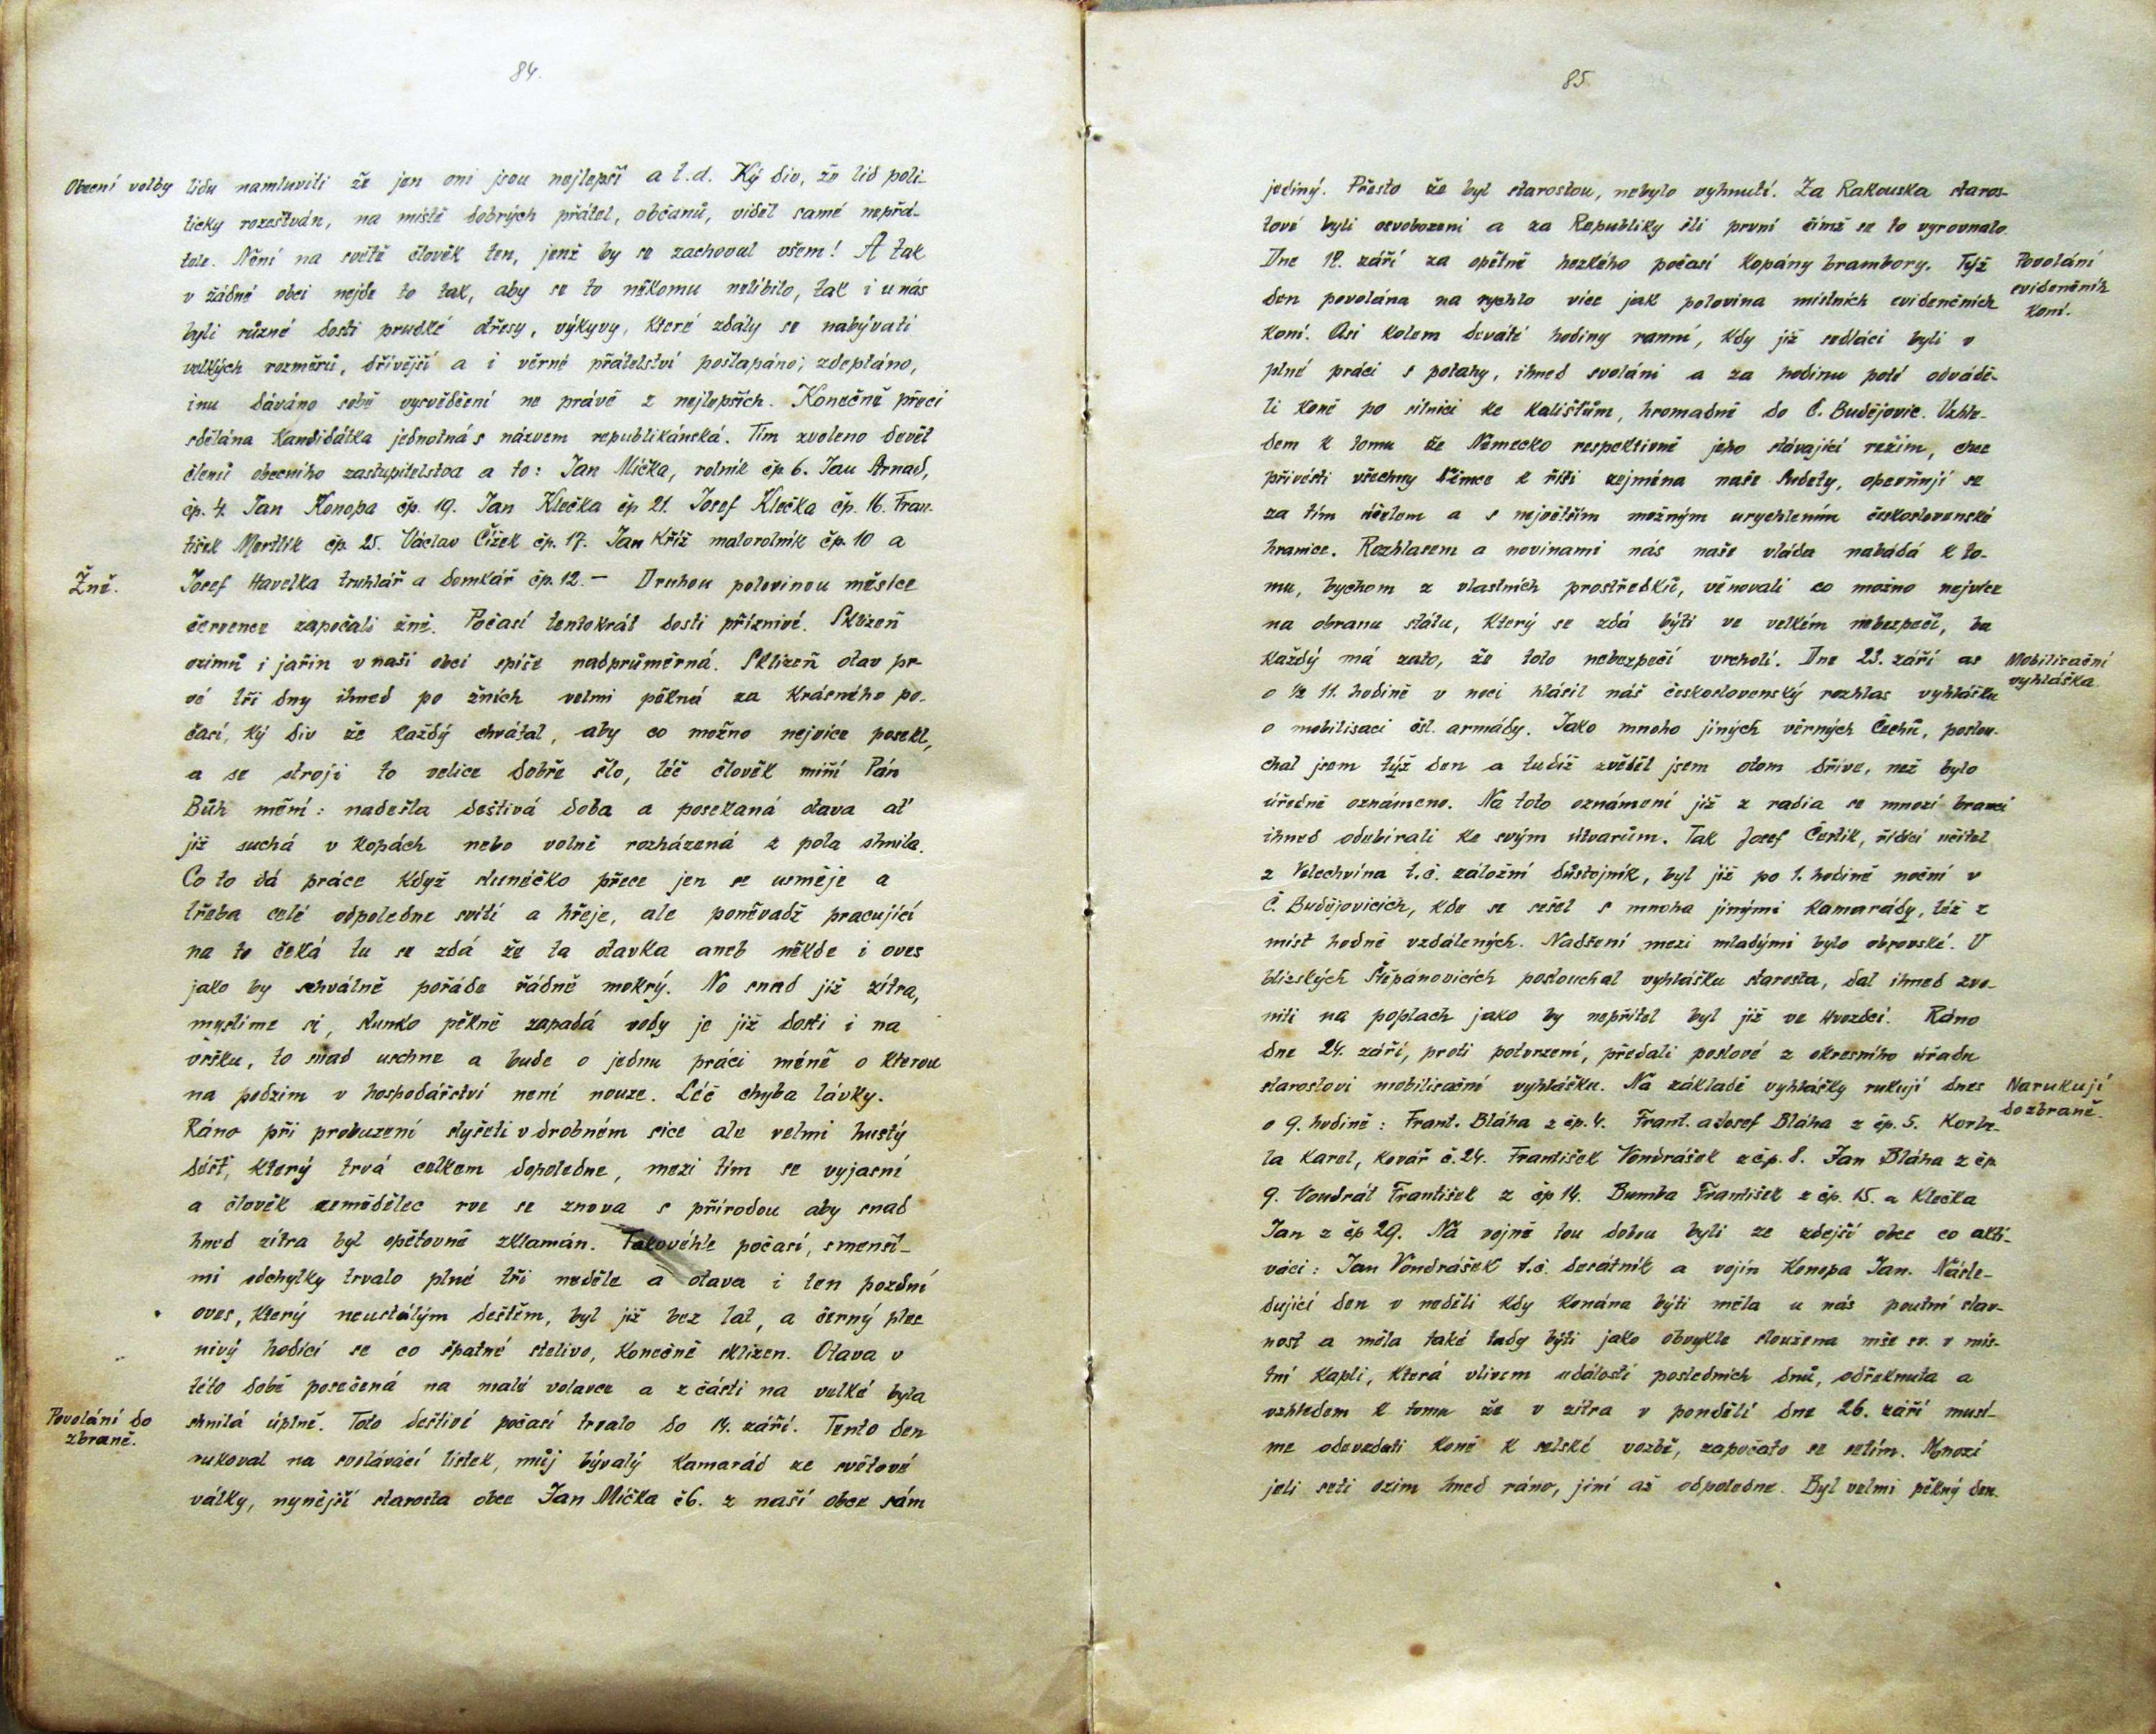 84.
Obecní volby
lidu namluvili že jen oni jsou nejlepší a t.d. Ký div, že lid poli-
ticky rozeštván, na místě dobrých přátel, občanů, viděl samé nepřá-
tele. Není na světě člověk ten, jenž by se zachoval všem! A tak
v žádné obci nejde to tak, aby se to někomu nelíbilo, tak i u nás
byli různé dosti prudké otřesy, výkyvy, které zdály se nabývati
velkých rozměrů, dřívější a i věrné přátelství pošlapáno, zdeptáno,
inu dáváno sobě vysvědčení ne právě z nejlepších. Konečně přeci
sdělána kandidátka jednotná s názvem republikánská. Tím zvoleno devět
členů obecního zastupitelstva a to: Jan Mička, rolník čp. 6. Jan Arnad,
čp. 4. Jan Konopa čp. 19. Jan Klečka čp 21. Josef Klečka čp. 16. Fran-
tišek Mertlík čp. 25. Václav Čížek čp. 17. Jan Kříž malorolník čp. 10 a
Žně.
Josef Havelka truhlář a domkář čp. 12. — Druhou polovinou měsíce
července započali žně. Počasí tentokrát dosti příznivé. Sklizeň
ozimů i jařin v naší obci spíše nadprůměrná. Sklizeň otav pr-
vé tři dny ihned po žních velmi pěkná za krásného po-
časí, ký div že každý chvátal, aby co možno nejvíce posekl,
a se stroji to velice dobře šlo, léč člověk míní Pán
Bůh mění: nadešla deštivá doba a posekaná otava ať
již suchá v kopách nebo volně rozházená z pola shnila.
Co to dá práce když slunéčko přece jen se usměje a
třeba celé odpoledne svítí a hřeje, ale poněvadž pracující
na to čeká tu se zdá že ta otavka aneb někde i oves
jako by schválně pořáde řádně mokrý. No snad již zítra,
myslíme si, slunko pěkně zapadá vody je již dosti i na
vršku, to snad uschne a bude o jednu práci méně o kterou
na podzim v hospodářství není nouze. Léč chyba lávky.
Ráno při probuzení slyšeti v drobném sice ale velmi hustý
déšť, který trvá celkem dopoledne, mezi tím se vyjasní
a člověk zemědělec rve se znova s přírodou aby snad
hned zítra byl opětovně zklamán. Takovéhle počasí, s menší-
mi odchylky trvalo plné tři neděle a otava i ten pozdní
oves, který neustálým deštěm, byl již bez lat, a černý ples
nivý hodící se co špatné stelivo, konečně sklizen. Otava v
této době posečená na malé volavce a z části na velké byla
Povolání do
zbraně.
shnilá úplně. Toto deštivé počasí trvalo do 14. září. Tento den
rukoval na svolávací lístek, můj bývalý kamarád ze světové
války, nynější starosta obce Jan Mička č6. z naší obce sám
85.
jediný. Přesto že byl starostou, nebylo vyhnutí. Za Rakouska staros-
tové byli osvobozeni a za Republiky šli první čímž se to vyrovnalo.
Dne 18. září za opětně hezkého počasí kopány brambory. Týž
Povolání
evidenčních
koní.
den povolána na rychlo více jak polovina místních evidenčních
koní. Asi kolem deváté hodiny ranní, kdy již sedláci byli v
plné práci s potahy, ihned svoláni a za hodinu poté odvádě-
li koně po silnici ke Kalištům, hromadně do Č. Budějovic. Vzhle-
dem k tomu že Německo respektivně jeho stávající režim, chce
přivésti všechny Němce k říši zejména naše Sudety, opevňují se
za tím účelem a s největším možným urychlením československé
hranice. Rozhlasem a novinami nás naše vláda nabádá k to-
mu, bychom z vlastních prostředků, věnovali co možno nejvíce
na obranu státu, který se zdá býti ve velkém nebezpečí, ba
každý má zato, že toto nebezpečí vrcholí. Dne 23. září as
Mobilisační
vyhláška.
o ½ 11. hodině v noci hlásil náš československý rozhlas vyhlášku
o mobilisaci čsl. armády. Jako mnoho jiných věrných Čechů, poslou-
chal jsem týž den a tudíž zvěděl jsem otom dříve, než bylo
úředně oznámeno. Na toto oznámení již z radia se mnozí branci
ihned odebírali ke svým útvarům. Tak Josef Čertík, řídící učitel
z Velechvína t.č. záložní důstojník, byl již po 1. hodině noční v
Č. Budějovicích, kde se sešel s mnoha jinými kamarády, též z
míst hodně vzdálených. Nadšení mezi mladými bylo obrovské. V
blízských Štěpánovicích poslouchal vyhlášku starosta, dal ihned zvo-
niti na poplach jako by nepřítel byl již ve Hvozdci. Ráno
dne 24. září, proti potvrzení, předali poslové z okresního úřadu
starostovi mobilisační vyhlášku. Na základě vyhlášky rukují dnes
Narukují
do zbraně.
o 9. hodině: Frant. Bláha z čp. 4. Frant. a Josef Bláha z čp. 5. Korbe-
la Karel, kovář č. 24. František Vondrášek z čp. 8. Jan Bláha z čp
9. Vondrát František z čp 14. Bumba František z čp. 15. a Klečka
Jan z čp 29. Na vojně tou dobou byli ze zdejší obce co akti-
váci: Jan Vondrášek t.č. desátník a vojín Konopa Jan. Násle-
dující den v neděli kdy konána býti měla u nás poutní slav-
nost a měla také tady býti jako obvykle sloužena mše sv. v mís-
tní kapli, která vlivem událostí posledních dnů, odřeknuta a
vzhledem k tomu že v zítra v pondělí dne 26. září musí-
me odevzdati koně k selské vozbě, započato se setím. Mnozí
jeli seti ozim hned ráno, jiní až odpoledne. Byl velmi pěkný den.